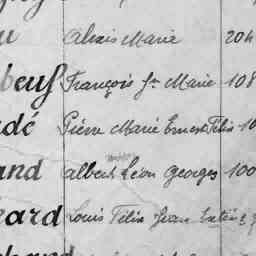 u Alexis Marie 204
beuf François Jn Marie 108
dé Pierre Marie Ernest Félix 10
and Albert Léon Georges 100
éard Louis Félix Jean
chand